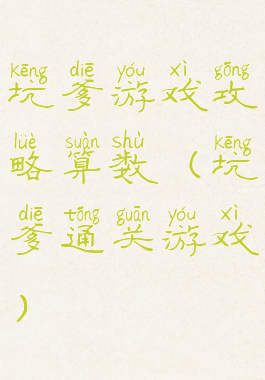 kēng diē yóu xì gōng
坑爹游戏攻
lüè suàn shù ( kēng
略算数(坑
diē tōng guān yóu xì
爹通关游戏
)